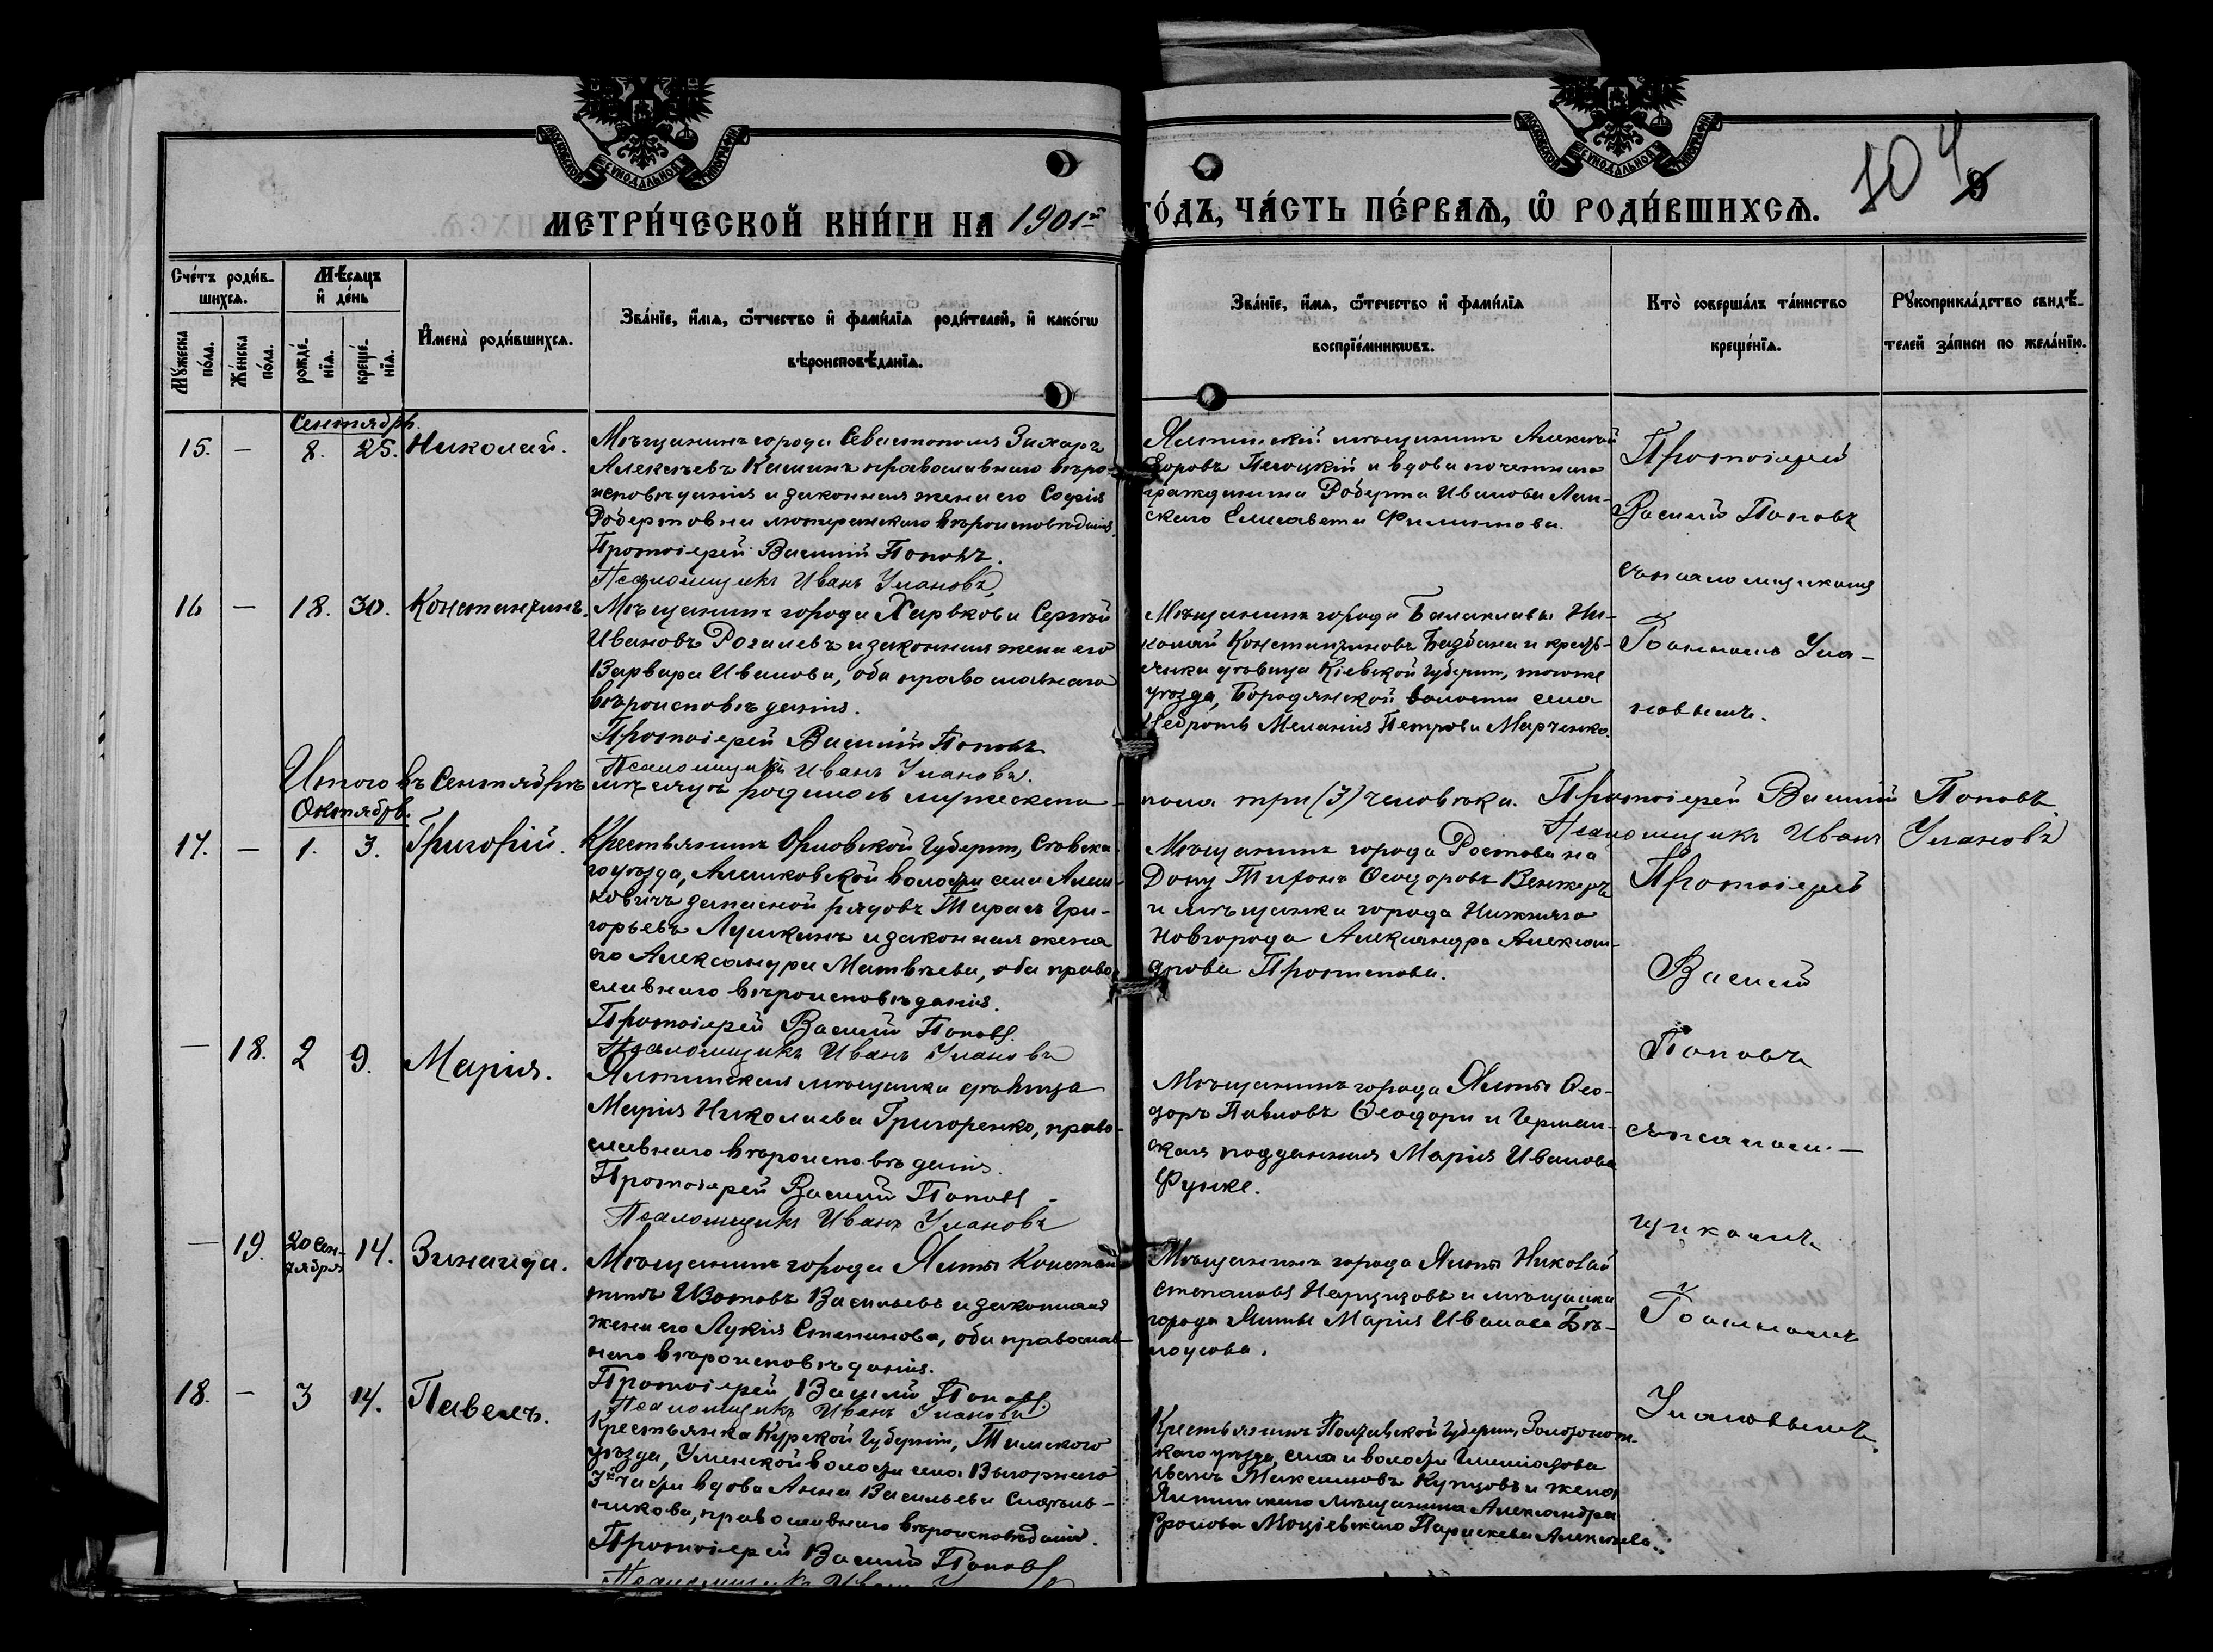 МОСКОВСКОЙ СѴНОДАЛЬНОЙ ТИПОГРАФІИ
МОСКОВСКОЙ СѴНОДАЛЬНОЙ ТИПОГРАФІИ
104
9
МЕТРИ́ЧЕСКОЙ КНИ́ГИ НА 1901й ГО́ДЪ, ЧА́СТЬ ПЕ́РВАЯ, Ѡ҆ РОДИ́ВШИХСЯ.
Сче́тъ роди́в-
шихся.
Мѣ́сяцъ
и҆ де́нь
Мꙋ́жеска
по́ла.
Же́нска
по́ла.
рожде́-
нїя.
креще́-
нїя.
И҆мена̀ роди́вшихся.
Зва́нїе, и҆́мя, ѻ҆́тчество и҆ фами́лїя роди́телей, и҆ како́гѡ
вѣроисповѣ́данїя.
Зва́нїе, и҆́мя, ѻ҆те́чество и҆ фами́лїя
воспрїе́мникѡвъ.
Кто̀ соверша́лъ та́инство
креще́нїя.
Рꙋкоприкла́дство свидѣ́-
телей за́писи по жела́нїю.
Сентябрь.
15. — 8. 25. Николай.
Мѣщанинъ города Севастополя Захаръ
Алексѣевъ Кашинъ православнаго вѣро-
исповѣданія и законная жена его Софія
Робертовна лютеранскаго вѣроисповѣданія.
Протоіерей Василій Поповъ.
Псаломщикъ Иванъ Улановъ
Ялтинскій мѣщанинъ Алексѣй
Егоровъ и вдова почетнаго
гражданина Роберта Иванова Лан-
скаго Елисавета Филиппова.
Протоіерей
Василій Поповъ
съ псаломщикомъ
16 — 18. 30. Константинъ.
Мѣщанинъ города Харькова Сергѣй
Ивановъ Рогалевъ и законная жена его
Варвара Иванова, оба православнаго
вѣроисповѣданія.
Протоіерей Василій Поповъ
Псаломщикъ Иванъ Улановъ.
Мѣщанинъ города Балаклавы Ни-
колай Константиновъ и крестья-
нка дѣвица Кіевской губерніи, того же
уѣзда, Бородянской волости села
Меланія Петрова Марченко.
Іоанномъ Ула-
новымъ.
Итого въ Сентябрѣ мѣсяцѣ родилось мужескаго пола три (3) человѣка. Протоіерей Василій Поповъ
Псаломщикъ Иванъ Улановъ
Октябрь.
17. — 1. 3. Григорій.
Крестьянинъ Орловской Губерніи, Сѣвска-
го уѣзда, Алешковской волости села Алеш-
ковичъ запасной рядовъ Тарасъ Гри-
горьевъ Лушкинъ и законная жена
его Александра Матвѣева, оба право-
славнаго вѣроисповѣданія.
Протоіерей Василій Поповъ.
Псаломщикъ Иванъ Улановъ
Мѣщанинъ города Ростова на
Дону Тихонъ Ѳеодоровъ Венжеръ
и мѣщанка города Нижняго
Новгорода Александра Алексан-
дрова Протопова.
Протоіерей
Василій
— 18. 2 9. Марія.
Ялтинская мѣщанка дѣвица
Марія Николаева Григоренко, право-
славнаго вѣроисповѣданія.
Протоіерей Василій Поповъ
Псаломщикъ Иванъ Улановъ
Мѣщанинъ города Ялты Ѳео-
доръ Павловъ Ѳеодори и Герман-
ская подданная Марія Иванова
Функе.
Поповъ
съ псалом-
щикомъ
— 19. 20 Сен-
тября 14. Зинаида.
Мѣщанинъ города Ялты Констан-
тинъ Изотовъ Васильевъ и законная
жена его Лукія Степанова, оба православ-
наго вѣроисповѣданія.
Протоіерей Василій Поповъ.
Псаломщикъ Иванъ Улановъ
Мѣщанинъ города Ялты Николай
Степановъ и мѣщанка
города Ялты Марія Иванова Бѣ-
лоусова.
Іоанномъ
18. — 3 14. Павелъ.
Крестьянка Курской Губерніи, Тимского
уѣзда, Узинской волости села Выгорнаго
3й части вдова Анна Васильева
православнаго вѣроисповѣданія.
Протоіерей Василій Поповъ
Псаломщикъ Иванъ
Крестьянинъ Полтавской Губерніи, Золотонош-
скаго уѣзда, села и волости
Иванъ Максимовъ Купцовъ и жена
Ялтинскаго мѣщанина Александра
Фролова Моціевскаго Параскева Алексѣева.
Улановымъ.